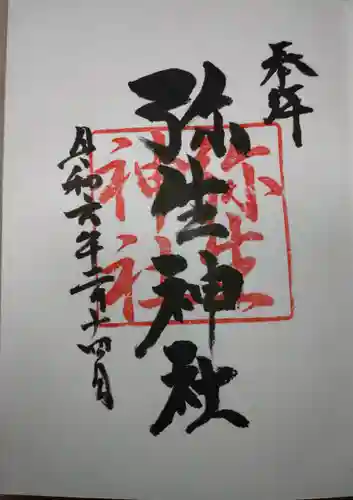 奉拝
弥生神社
弥生
神社
令和六年二月十四日